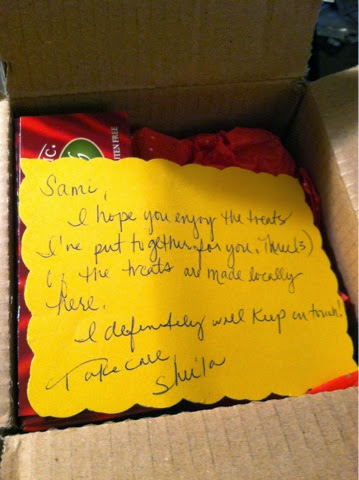 C.
GLUTEN FREE
Sami,
I hope you enjoy the treats
I've put together for you. Three (3)
of the treats are made locally
here.
I definitely will keep in touch!
Take care
Sheila